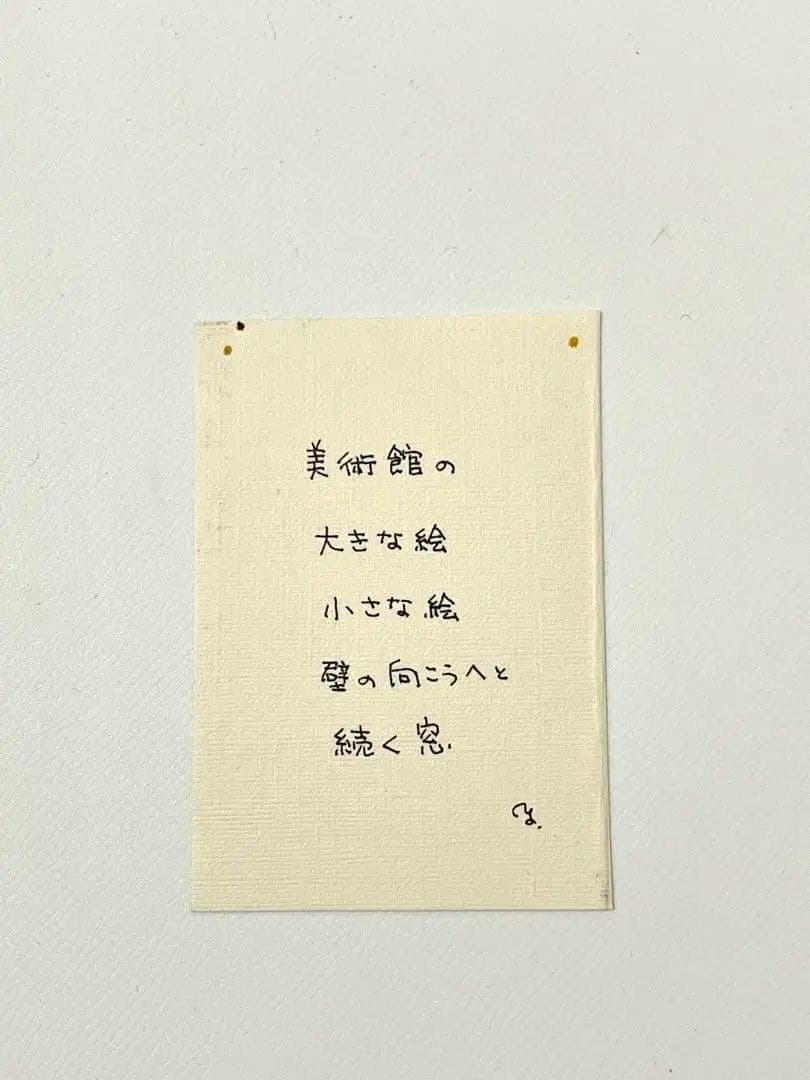 美術館の
大きな絵
小さな絵
壁の向こうへと
続く窓